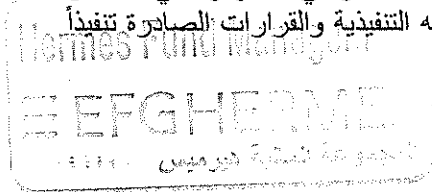 ه التنفيذية والقرارات الصادرة تنفيذاً
Hermes Fund
EFG HERME
المجموعة المالية هيرميس